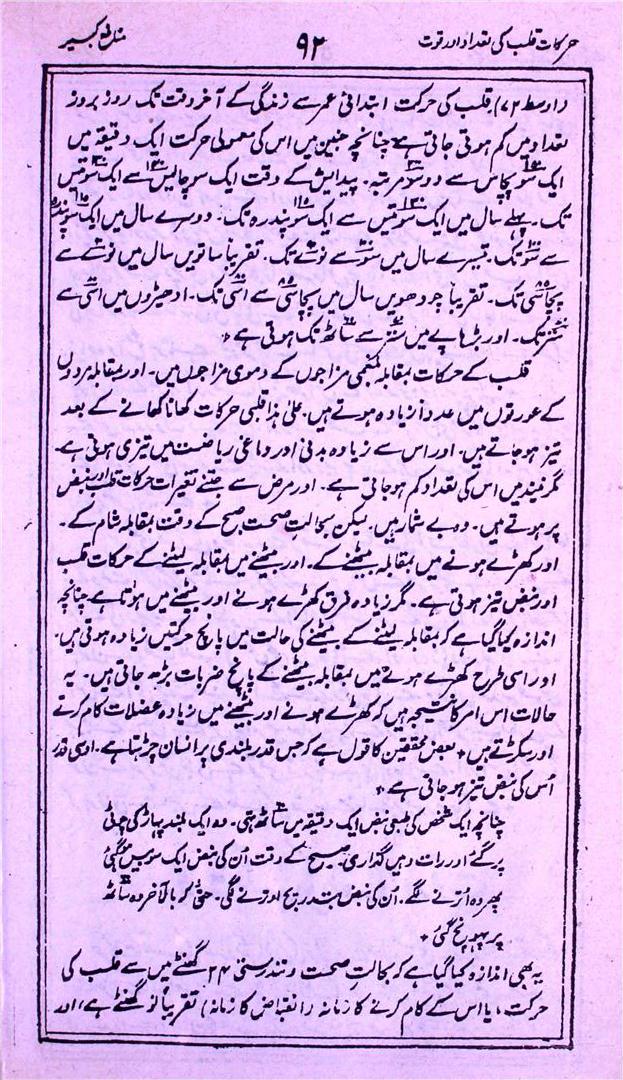 حرکات قلب کی تعداد اور قوت ۹۲ منافع کبیر
(اوسط ۷۲) قلب کی حرکت ابتدائی عمر سے زندگی کے آخر وقت تک روز بروز
تعداد میں کم ہوتی جاتی ہے چنانچہ جنین میں اس کی معمولی حرکت ایک دقیقہ میں
ایک سو پچاس سے دو سو مرتبہ۔ پیدایش کے وقت ایک سو چالیس سے ایک سو تیس
تک۔ پہلے سال میں ایک سو تیس سے ایک سو پندرہ تک۔ دوسرے سال میں ایک سو پندرہ
سے سو تک۔ تیسرے سال میں سو سے نوے تک۔ تقریباً ساتویں سال میں نوے سے
پچاسی تک۔ تقریباً چودھویں سال میں پچاسی سے اسی تک۔ ادھیڑوں میں اسی سے
ستر تک۔ اور بڑھاپے میں ستر سے ساٹھ تک ہوتی ہے +
قلب کے حرکات بمقابلہ بلغمی مزاجوں کے دموی مزاجوں میں۔ اور بمقابلہ مردوں
کے عورتوں میں عدداً زیادہ ہوتے ہیں۔ علیٰ ہذا قلبی حرکات کھانا کھانے کے بعد
تیز ہو جاتے ہیں۔ اور اس سے زیادہ بدنی اور دماغی ریاضت میں تیزی ہوتی ہے۔
مگر نیند میں اس کی تعداد کم ہو جاتی ہے۔ اور مرض سے جتنے تغیرات حرکات قلب اور نبض
پر ہوتے ہیں۔ وہ بے شمار ہیں۔ لیکن بحالت صحت صبح کے وقت بمقابلہ شام کے۔
اور کھڑے ہونے میں بمقابلہ بیٹھنے کے۔ اور بیٹھنے میں بمقابلہ لیٹنے کے حرکات قلب
اور نبض تیز ہوتی ہے۔ مگر زیادہ فرق کھڑے ہونے اور بیٹھنے میں ہوتا ہے چنانچہ
اندازہ کیا گیا ہے کہ بمقابلہ لیٹنے کے بیٹھنے کی حالت میں پانچ حرکتیں زیادہ ہوتی ہیں۔
اور اسی طرح کھڑے ہونے میں بمقابلہ بیٹھنے کے پانچ ضربات بڑھ جاتی ہیں۔ یہ
حالات اس امر کا نتیجہ ہیں کہ کھڑے ہونے اور بیٹھنے میں زیادہ عضلات کام کرتے
اور سکڑتے ہیں + بعض محققین کا قول ہے کہ جس قدر بلندی پر انسان چڑھتا ہے۔ اوسی قدر
اُس کی نبض تیز ہو جاتی ہے +
چنانچہ ایک شخص کی طبعی نبض ایک دقیقہ میں ساٹھ تھی۔ وہ ایک بلند پہاڑ کی چوٹی
پر گئے اور رات وہیں گذاری۔ صبح کے وقت اُن کی نبض ایک سو بیس ہو گئی
پھر وہ اُترنے لگے۔ اُن کی نبض بتدریج اوترنے لگی۔ حتیٰ کہ بالآخر وہ ساٹھ
پر پہونچ گئی +
یہ بھی اندازہ کیا گیا ہے کہ بحالت صحت و تندرستی ۲۴ گھنٹے میں سے قلب کی
حرکت، یا اس کے کام کرنے کا زمانہ (انقباض کا زمانہ) تقریباً نو گھنٹے ہے، اور